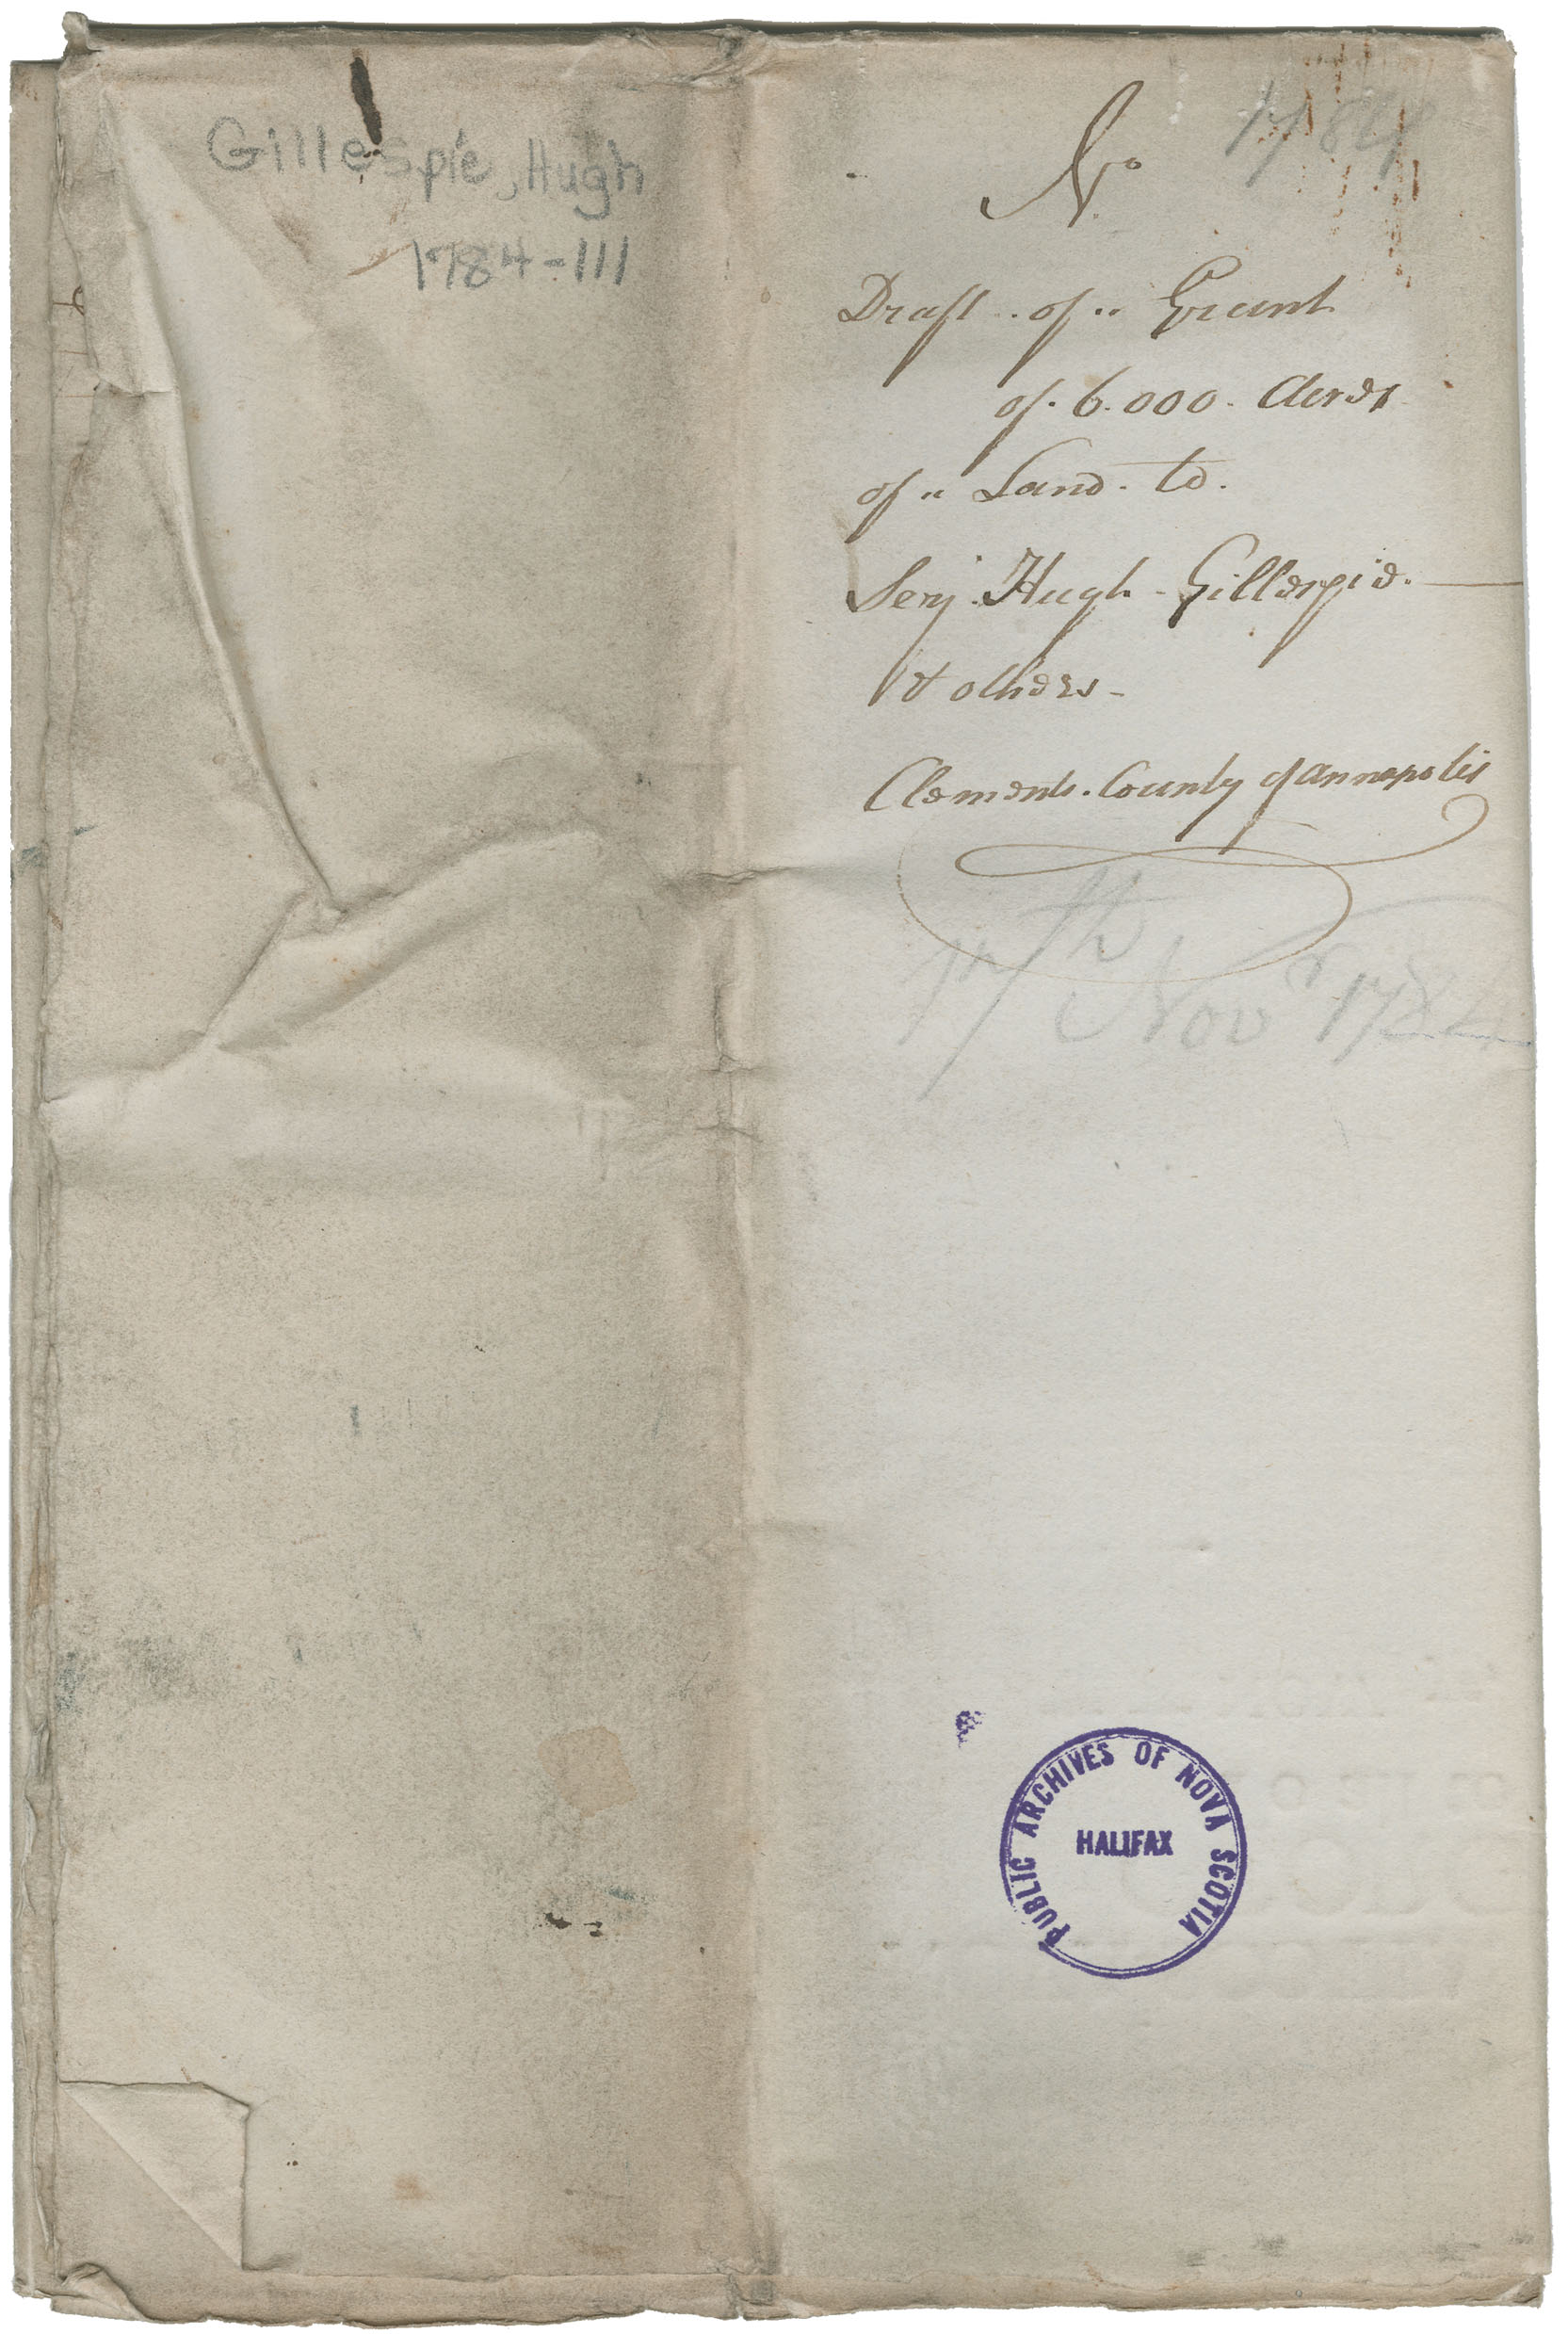 Gillespie, Hugh
1784-111
No 1784
Draft . of .. Grant
of . 6.000 . Acres
of .. Land . to .
Serj . Hugh - Gillespie .
& others -
Clements . County of Annapolis
17th Novr 1784
PUBLIC ARCHIVES OF NOVA SCOTIA
HALIFAX